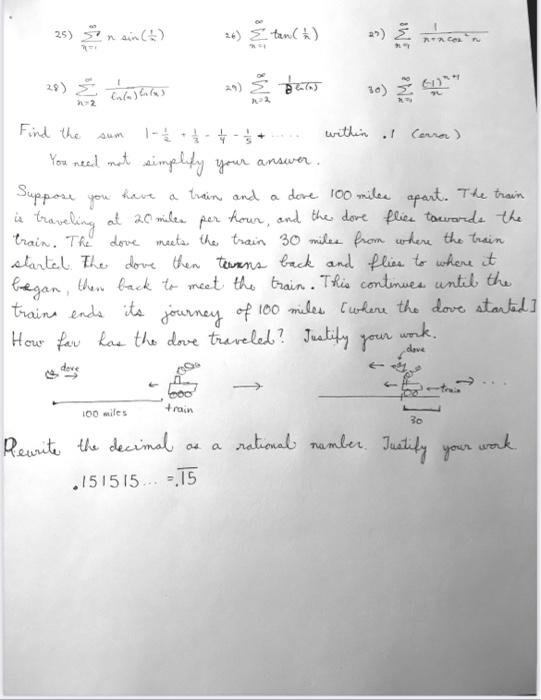 25) ∞ Σ n=1 n sin(1/n) 26) ∞ Σ n=1 tan(1/n) 27) ∞ Σ n=1 1/(n+n cos²n)
28) ∞ Σ n=2 1/(ln(n) ln(n)) 29) ∞ Σ n=2 1/ln(n) 30) ∞ Σ n=1 (-1)^(n+1)/n
Find the sum 1-1/2+1/3-1/4-1/5+..... within .1 (error)
You need not simplify your answer.
Suppose you have a train and a dove 100 miles apart. The train
is traveling at 20 miles per hour, and the dove flies towards the
train. The dove meets the train 30 miles from where the train
started. The dove then turns back and flies to where it
began, then back to meet the train. This continues until the
train ends its journey of 100 miles [where the dove started]
How far has the dove traveled? Justify your work.
dove
dove
train
100 miles
train
30
Rewrite the decimal as a rational number. Justify your work
.151515... = .1̅5̅